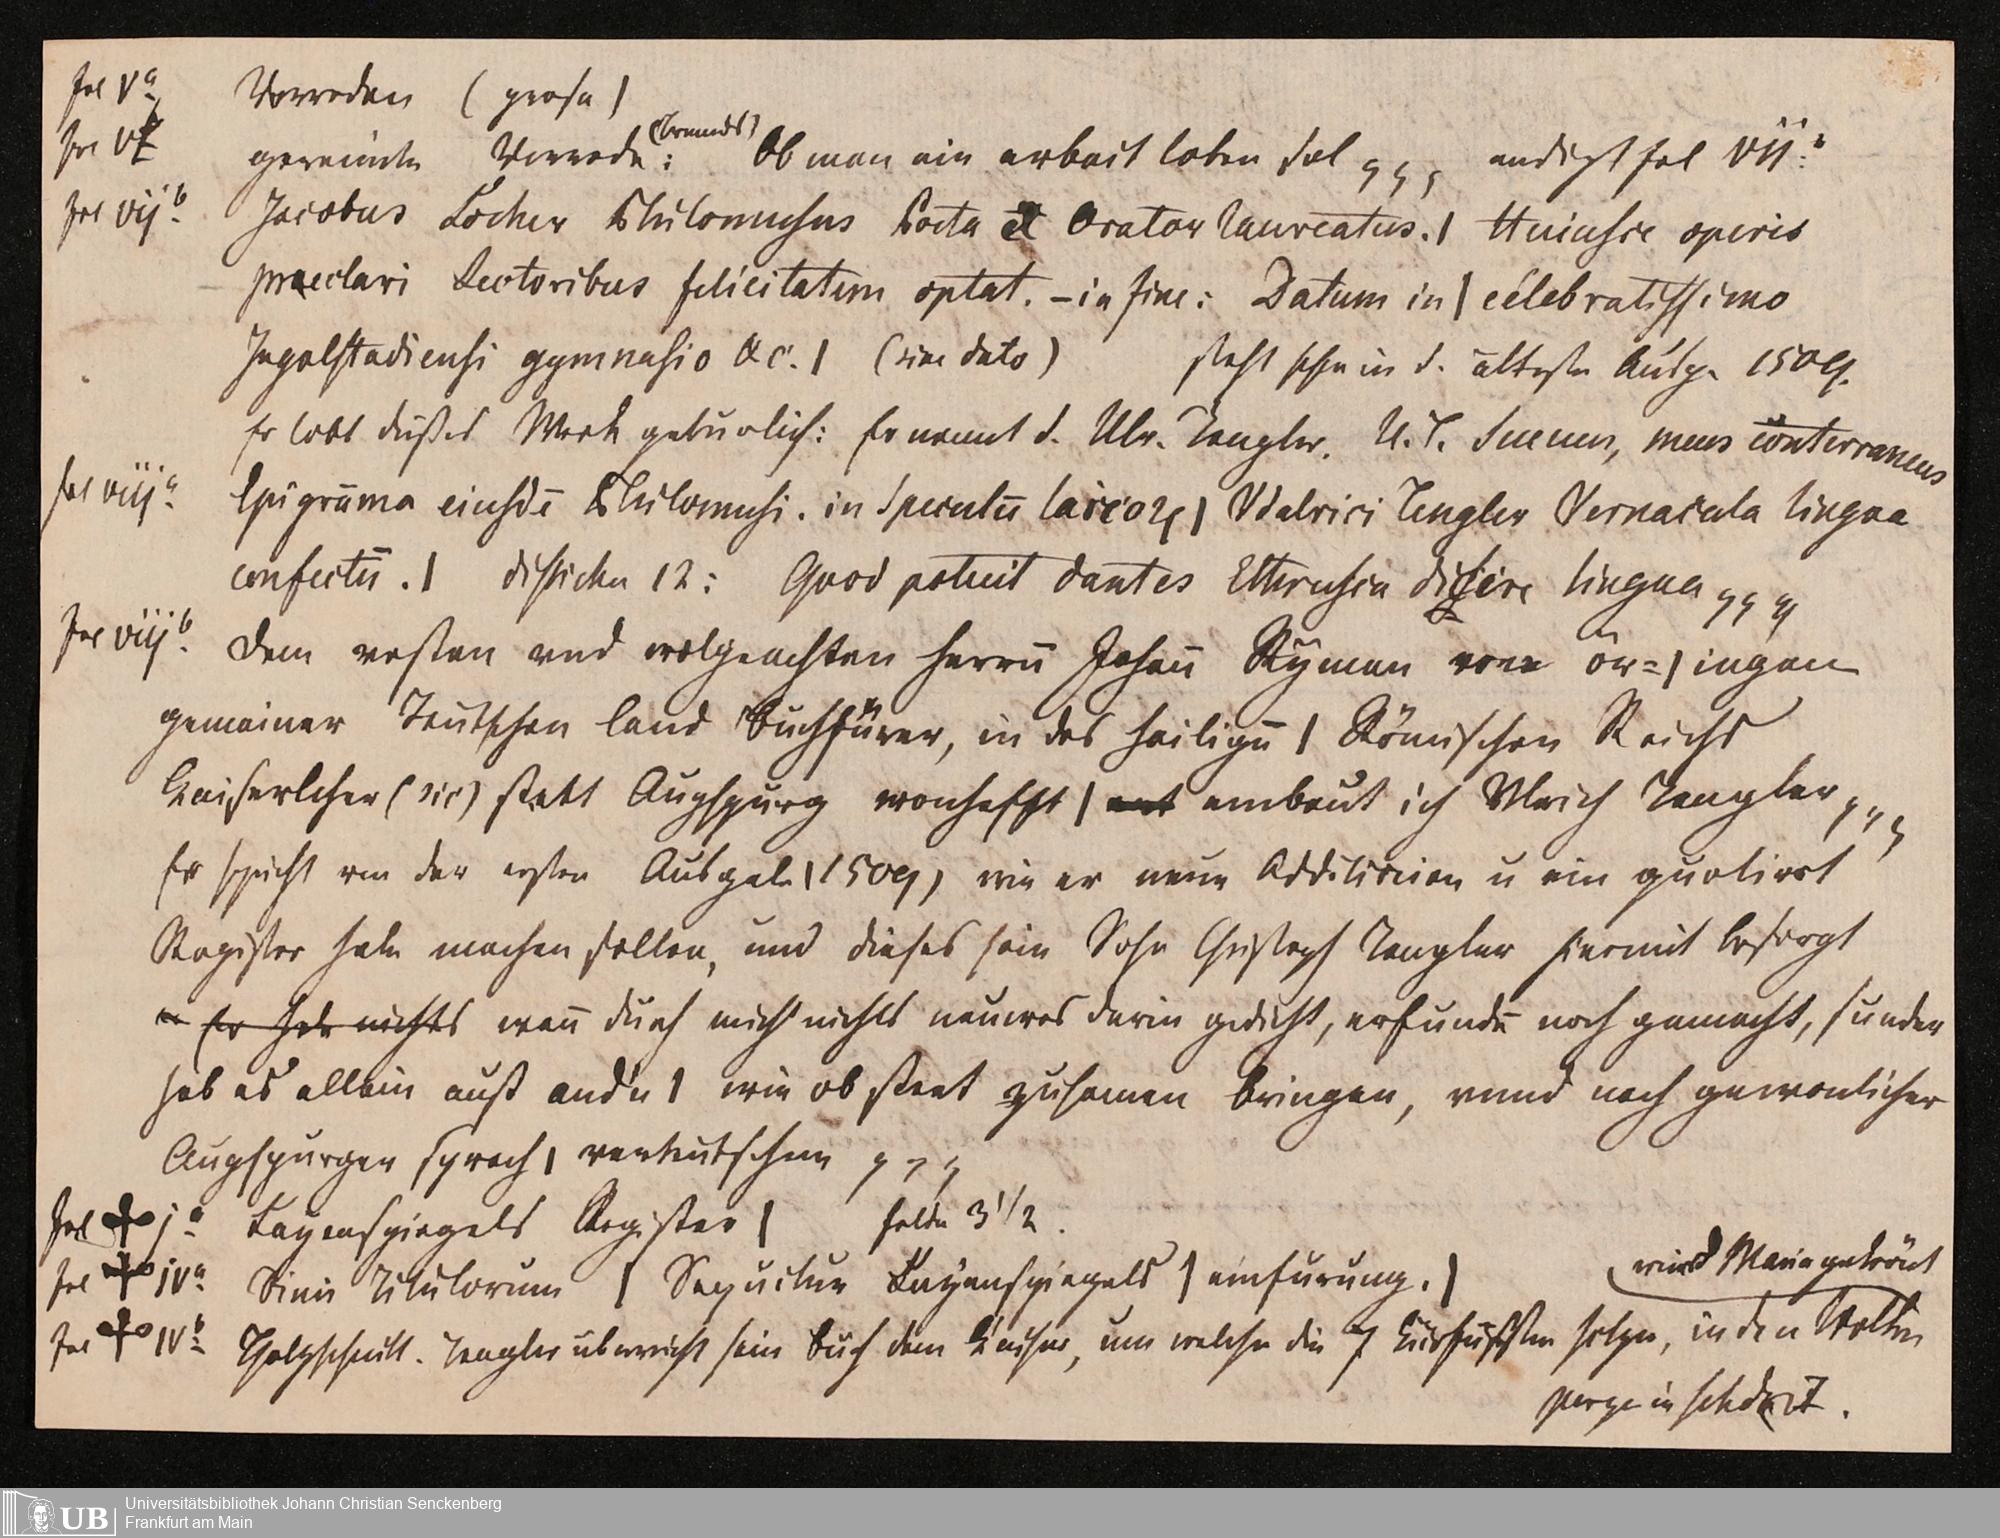 fol Vᵃ Vorreden (prosa)
fol VI gereimte Vorrede: (Brands) Ob man ein arbait loben sol ... endigt fol VIIᵃ
fol VIIᵇ Jacobus Locher Philomusus Poeta et Orator laureatus. | Huiusce operis
praeclari Lectoribus felicitatem optat. – in fine: Datum in | celebratissimo
Ingolstadiensi gymnasio &c. | (sine dato) steht schon in d. älteste Ausg. 1509.
Er lobt dießes Werk gebürlich: Er nennt d. Ulr. Tengler. U. T. Sueuus, meus conterraneus
fol VIIIᵃ Epigrāma eiusdē Philomusi. in Speculū laicoꝝ | Vdalrici Tengler Vernacula lingua
confectū. | disticha 12: Quod potuit dantes Ethrusca dicere lingua
fol VIIIᵇ Dem vesten vnd wolgeachten herrn̄ Johan̄ Rÿman von ör= | ingen
gemainer Teutschen land Buchfürer, in des hailigen̄ | Römischen Reichs
Kaiserlcher (sic) statt Augspurg wonhafft | embeut ich Vlrich Tengler
Er spricht von der ersten Ausgabe (1509), wie er neue Additionen u ein quotirt
Register habe machen sollen, und dieses sein Sohn Christoph Tengler hiermit besorgt
Er hab nichts wan̄ durch mich nichts neuwes darin gedicht, erfundē noch gemacht, sunder
hab es allein auß andn̄ | wie ob steet zusamen bringen, vnnd nach gewonlicher
Augspurger sprach | verteutschen
fol ✣ jᵃ Layenspiegels Register | folia 3 1/2.
fol ✣ ivᵃ Finis Titulorum | Sequitur Layenspiegels | einfurung. | wird Maria gekrönt
fol ✣ IVᵇ Holzschnitt. Tengler überreicht sein Buch dem Kaiser, um welchen die 7 Kürfürsten sitzen, in den Wolken
perge in scheda 7.
Universitätsbibliothek Johann Christian Senckenberg
Frankfurt am Main
UB